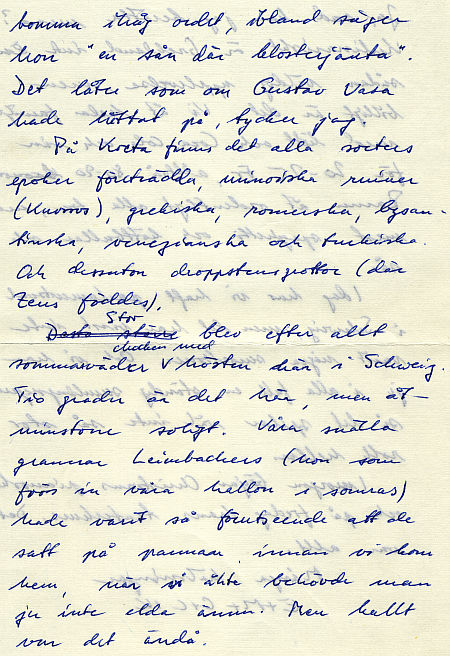 komma ihåg ordet, ibland säger
hon "en sån där klosterjänta".
Det låter som om Gustav Vasa
hade hittat på, tycker jag.
På Kreta finns det alla sorters
epoker företrädda, minoiska ruiner
(Knossos), grekiska, romerska, bysan-
tinska, venezianska och turkiska.
Och dessutom droppstensgrottor (där
Zeus föddes).
Stor
Desto större blev efter allt
chocken med
sommarväder v hösten här i Schweiz.
Tio grader är det här, men åt-
minstone soligt. Våra snälla
grannar Leimbachers (hon som
frös in våra hallon i somras)
hade varit så förutseende att de
satt på pannan innan vi kom
hem, när vi åkte behövde man
ju inte elda ännu. Men kallt
var det ändå.